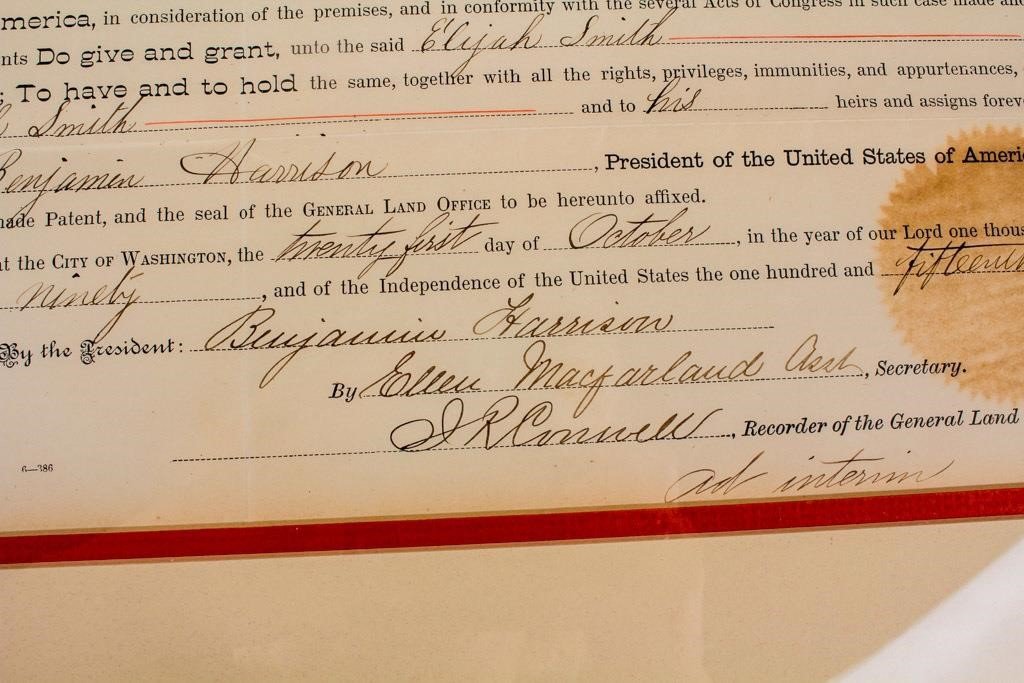 merica, in consideration of the premises, and in conformity with the several Acts of Congress in such case made and
nts Do give and grant, unto the said Elijah Smith
; To have and to hold the same, together with all the rights, privileges, immunities, and appurtenances,
Smith and to his heirs and assigns foreve
Benjamin Harrison, President of the United States of Americ
made Patent, and the seal of the GENERAL LAND OFFICE to be hereunto affixed.
at the CITY OF WASHINGTON, the twenty first day of October, in the year of our Lord one thous
ninety, and of the Independence of the United States the one hundred and fifteenth
By the President: Benjamin Harrison
By Ellen Macfarland Asst, Secretary.
J R Conwell, Recorder of the General Land
6—386
ad interim